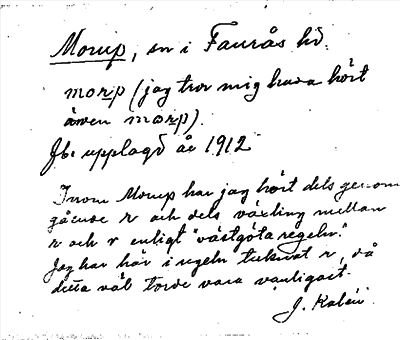 Morup, sn i Faurås hd.
morp (jag tror mig hava hört
även morp).
Jb. upplagd år 1912
Inom Morup har jag hört dels genom
gående r och dels växling mellan
r och r enligt "västgötaregeln".
Jag har här i regeln tecknat r, då
detta väl torde vara vanligast.
J. Kalén